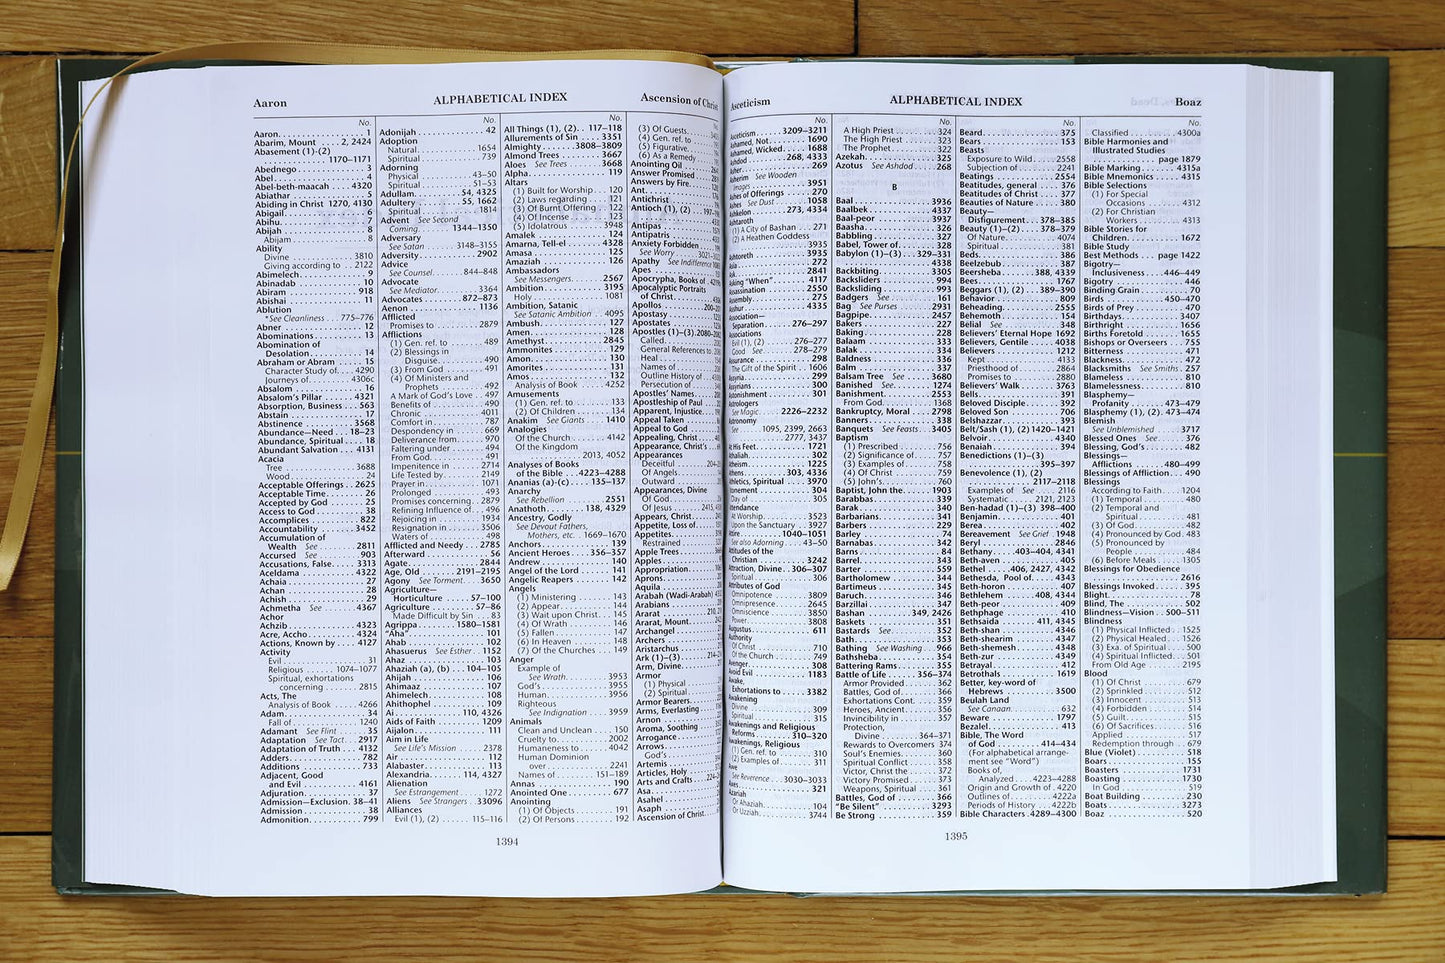 Aaron
ALPHABETICAL INDEX
Ascension of Christ
No.
Aaron. . . . . . . . . . . . . . . . . 1
Abarim, Mount . . . . 2, 2424
Abasement (1)-(2)
1170–1171
Abednego . . . . . . . . . . . . . 3
Abel . . . . . . . . . . . . . . . . . 4
Abel-beth-maacah . . . . 4320
Abiathar . . . . . . . . . . . . . 5
Abiding in Christ 1270, 4130
Abigail . . . . . . . . . . . . . . 6
Abihu. . . . . . . . . . . . . . . 7
Abijah . . . . . . . . . . . . . . 8
Abijam . . . . . . . . . . . . . 8
Ability
Divine . . . . . . . . . . . 3810
Giving according to . . 2122
Abimelech . . . . . . . . . . . . 9
Abinadab . . . . . . . . . . . . 10
Abiram . . . . . . . . . . . . . 918
Abishai . . . . . . . . . . . . . 11
Ablution
*See Cleanliness . . . 775–776
Abner . . . . . . . . . . . . . . 12
Abominations . . . . . . . . . 13
Abomination of
Desolation. . . . . . . . . . 14
Abraham or Abram . . . . . 15
Character Study of. . . . 4290
Journeys of . . . . . . . 4306c
Absalom . . . . . . . . . . . . 16
Absalom's Pillar . . . . . 4321
Absorption, Business . . . 563
Abstain . . . . . . . . . . . . . 17
Abstinence . . . . . . . . . 3568
Abundance—Need . . . 18–23
Abundance, Spiritual . . . . 18
Abundant Salvation . . . 4131
Acacia
Tree . . . . . . . . . . . . 3688
Wood . . . . . . . . . . . . . 24
Acceptable Offerings . . 2625
Acceptable Time. . . . . . . . 26
Accepted by God . . . . . . . 25
Access to God . . . . . . . . . 38
Accomplices . . . . . . . . . 822
Accountability . . . . . . . 3452
Accumulation of
Wealth See . . . . . . . . 2811
Accursed See . . . . . . . . 903
Accusations, False. . . . . 3313
Aceldama . . . . . . . . . . 4322
Achaia . . . . . . . . . . . . . 27
Achan . . . . . . . . . . . . . . 28
Achish . . . . . . . . . . . . . 29
Achmetha See . . . . . . . 4367
Achor
Achzib . . . . . . . . . . . . 4323
Acre, Accho . . . . . . . . . 4324
Actions, Known by . . . . 4127
Activity
Evil . . . . . . . . . . . . . . 31
Religious . . . . . 1074–1077
Spiritual, exhortations
concerning . . . . . . . 2815
Acts, The
Analysis of Book . . . . . 4266
Adam. . . . . . . . . . . . . . 34
Fall of . . . . . . . . . . . 1240
Adamant See Flint . . . . . 35
Adaptation See Tact. . . 2917
Adaptation of Truth . . . 4132
Adders . . . . . . . . . . . . 782
Additions . . . . . . . . . . 733
Adjacent, Good
and Evil . . . . . . . . . 4161
Adjuration. . . . . . . . . . . 37
Admission—Exclusion. 38–41
Admission . . . . . . . . . . . 38
Admonition . . . . . . . . . 799
No.
Adonijah . . . . . . . . . . . 42
Adoption
Natural. . . . . . . . . . 1654
Spiritual . . . . . . . . . . 739
Adorning
Physical . . . . . . . . 43–50
Spiritual . . . . . . . . 51–53
Adullam. . . . . . . . 54, 4325
Adultery . . . . . . . . 55, 1662
Spiritual . . . . . . . . . 1814
Advent See Second
Coming. . . . . . . 1344–1350
Adversary
See Satan . . . . . 3148–3155
Adversity. . . . . . . . . . 2902
Advice
See Counsel. . . . . 844–848
Advocate
See Mediator. . . . . . 3364
Advocates . . . . . . 872–873
Aenon . . . . . . . . . . . 1136
Afflicted
Promises to . . . . . . . 2879
Afflictions
(1) Gen. ref. to . . . . . 489
(2) Blessings in
Disguise. . . . . . . . 490
(3) From God . . . . . . 491
(4) Of Ministers and
Prophets . . . . . . . 492
A Mark of God's Love . . 497
Benefits of . . . . . . . . 490
Chronic . . . . . . . . . 4011
Comfort in . . . . . . . . 787
Despondency in . . . . . 669
Deliverance from. . . . . 970
Faltering under . . . . . 494
From God. . . . . . . . . 491
Impenitence in . . . . . 2714
Life Tested by . . . . . . 2149
Prayer in . . . . . . . . . 1071
Prolonged . . . . . . . . 493
Promises concerning. . . 2879
Refining Influence of. . . 496
Rejoicing in . . . . . . . 1934
Resignation in . . . . . . 3506
Waters of . . . . . . . . . 498
Afflicted and Needy . . . 2785
Afterward . . . . . . . . . . 56
Agate. . . . . . . . . . . . 2844
Age, Old . . . . . . 2191–2195
Agony See Torment. . . . 3650
Agriculture—
Horticulture . . . . . 57–100
Agriculture . . . . . . . 57–86
Made Difficult by Sin . . 83
Agrippa . . . . . . 1580–1581
"Aha" . . . . . . . . . . . . 101
Ahab . . . . . . . . . . . . 102
Ahasuerus See Esther . . 1152
Ahaz . . . . . . . . . . . . 103
Ahaziah (a), (b) . . . 104–105
Ahijah . . . . . . . . . . . 106
Ahimaaz . . . . . . . . . . 107
Ahimelech . . . . . . . . . 108
Ahithophel . . . . . . . . . 109
Ai . . . . . . . . . . 110, 4326
Aids of Faith . . . . . . . 1209
Aijalon . . . . . . . . . . . 111
Aim in Life
See Life's Mission . . . . 2378
Air . . . . . . . . . . . . . 112
Alabaster . . . . . . . . . 113
Alexandria. . . . . 114, 4327
Alienation
See Estrangement . . . . 1272
Aliens See Strangers . 33096
Alliances
Evil (1), (2) . . . . 115–116
No.
All Things (1), (2). . 117–118
Allurements of Sin . . . . 3351
Almighty . . . . . 3808–3809
Almond Trees . . . . . . . 3667
Aloes See Trees . . . . . 3668
Alpha . . . . . . . . . . . 119
Altars
(1) Built for Worship. . . 120
(2) Laws regarding . . . 121
(3) Of Burnt Offering . . 122
(4) Of Incense . . . . . . 123
(5) Idolatrous . . . . . . 3948
Amalek . . . . . . . . . . 124
Amarna, Tell-el . . . . . 4328
Amasa . . . . . . . . . . . 125
Amaziah . . . . . . . . . . 126
Ambassadors
See Messengers. . . . . 2567
Ambition . . . . . . . . . 3195
Holy . . . . . . . . . . . 1081
Ambition, Satanic
See Satanic Ambition . . 4095
Ambush . . . . . . . . . . 127
Amen. . . . . . . . . . . . 128
Amethyst . . . . . . . . . 2845
Ammonites . . . . . . . . 129
Amon . . . . . . . . . . . 130
Amorites . . . . . . . . . 131
Amos . . . . . . . . . . . 132
Analysis of Book . . . . 4252
Amusements
(1) Gen. ref. to . . . . . 133
(2) Of Children . . . . . 134
Anakim See Giants . . . 1410
Analogies
Of the Church . . . . . 4142
Of the Kingdom
2013, 4052
Analyses of Books
of the Bible . . . 4223–4288
Ananias (a)-(c). . . . 135–137
Anarchy
See Rebellion . . . . . 2551
Anathoth. . . . . . 138, 4329
Ancestry, Godly
See Devout Fathers,
Mothers, etc. . 1669–1670
Anchors . . . . . . . . . . 139
Ancient Heroes . . . 356–357
Andrew . . . . . . . . . . 140
Angel of the Lord . . . . 141
Angelic Reapers . . . . . 142
Angels
(1) Ministering . . . . . 143
(2) Appear . . . . . . . . 144
(3) Wait upon Christ. . . 145
(4) Of Wrath . . . . . . . 146
(5) Fallen . . . . . . . . 147
(6) In Heaven . . . . . . 148
(7) Of the Churches . . . 149
Anger
Example of
See Wrath. . . . . . . 3953
God's . . . . . . . . . . 3955
Human. . . . . . . . . . 3956
Righteous
See Indignation . . . . 3959
Animals
Clean and Unclean . . . 150
Cruelty to. . . . . . . . 2002
Humaneness to . . . . . 4042
Human Dominion
over . . . . . . . . . 2241
Names of . . . . . 151–189
Annas . . . . . . . . . . 190
Anointed One . . . . . . 677
Anointing
(1) Of Objects . . . . . 191
(2) Of Persons . . . . . 192
(3) Of Guests. . . .
(4) Gen. ref. to
(5) Figurative.
(6) As a Remedy
Anointing Oil
Answer Promised
Answers by Fire.
Ant.
Antichrist
Antioch (1), (2)
Antipas
Antipatris
Anxiety Forbidden
See Worry
Apathy See Indifference
Apes
Apocrypha, Books of
Apocalyptic Portraits
of Christ.
Apollos
Apostasy
Apostates
Apostles (1)–(3).
Called.
General References to
Heal
Names of
Outline History of
Persecution of
Apostles' Names.
Apostleship of Paul
Apparent, Injustice.
Appeal Taken
Appeal to God
Appealing, Christ
Appearance, Christ's
Appearances
Deceitful
Of Angels
Outward
Appearances, Divine
Of God
Of Jesus
Appears, Christ
Appetite, Loss of
Appetites.
Restrained
Apple Trees
Apples.
Appropriation
Aprons.
Aquila
Arabah (Wadi-Arabah)
Arabians
Ararat
Ararat, Mount.
Archangel
Archers
Aristarchus
Ark (1)–(3)
Arm, Divine.
Armor
(1) Physical
(2) Spiritual
Armor Bearers
Arms, Everlasting
Arnon
Aroma, Soothing
Arrogance
Arrows.
God's
Artemis
Articles, Holy
Arts and Crafts
Asa.
Asahel
Asaph
Ascension of Christ.
1394
Asceticism
ALPHABETICAL INDEX
Boaz
No.
Asceticism . . . . . 3209–3211
Ashamed, Not . . . . . . 1690
Ashamed, Wicked . . . . 1688
Ashdod . . . . . . 268, 4333
Asher . . . . . . . . . . . 269
Asherim See Wooden
Images . . . . . . . . . 3951
Ashes of Offerings . . . . 270
Ashes See Dust . . . . . 1058
Ashkelon . . . . . 273, 4334
Ashtaroth
(1) A City of Bashan . . 271
(2) A Heathen Goddess
3935
Ashtoreth . . . . . . . . 3935
Asia . . . . . . . . . . . . 272
2841
Asking "When" . . . . . 4117
Assassination . . . . . . 2550
Assembly. . . . . . . . . 275
Asshur . . . . . . . . . . 4335
Association—
Separation . . . . . 276–297
Associations
Evil (1), (2) . . . . 276–277
Good See . . . . . 278–279
Assurance . . . . . . . . 298
The Gift of the Spirit . . 1606
Assyria . . . . . . . . . . 299
Assyrians . . . . . . . . . 300
Astonishment . . . . . . 301
Astrologers
See Magic . . . . 2226–2232
Astronomy
See . . . . 1095, 2399, 2663
2777, 3437
At His Feet. . . . . . . . 1721
Athaliah. . . . . . . . . . 302
Atheism . . . . . . . . . 1225
Athens . . . . . . 303, 4336
Athletics, Spiritual . . . 3970
Atonement . . . . . . . . 304
Day of . . . . . . . . . . 305
Attendance
At Worship. . . . . . . 3523
Upon the Sanctuary . . 3927
Attire . . . . . . 1040–1051
See also Adorning . . 43–50
Attitudes of the
Christian . . . . . . . . 3242
Attraction, Divine . . 306–307
Spiritual . . . . . . . . 306
Attributes of God
Omnipotence . . . . . . 3809
Omnipresence . . . . . 2645
Omniscience . . . . . . 3850
Power . . . . . . . . . . 3808
Augustus. . . . . . . . . 611
Authority
Of Christ . . . . . . . . 710
Of the Church . . . . . 749
Avenger. . . . . . . . . . 308
Avoid Evil . . . . . . . . 1183
Awake,
Exhortations to . . . . . 3382
Awakening
Divine . . . . . . . . . . 309
Spiritual . . . . . . . . 315
Awakenings and Religious
Reforms . . . . . . 310–320
Awakenings, Religious
(1) Gen. ref. to . . . . . 310
(2) Examples of . . . . . 311
Awe
See Reverence . . 3030–3033
Axes . . . . . . . . . . . 321
Azariah
Or Ahaziah. . . . . . . . 104
Or Uzziah. . . . . . . . 3744
No.
A High Priest . . . . . . 324
The High Priest . . . . . 323
The Prophet . . . . . . . 322
Azekah. . . . . . . . . . . 325
Azotus See Ashdod . . . 268
B
Baal . . . . . . . . . . . 3936
Baalbek . . . . . . . . . 4337
Baal-peor . . . . . . . . 3937
Baasha. . . . . . . . . . 326
Babbling . . . . . . . . . 327
Babel, Tower of. . . . . . 328
Babylon (1)—(3) . . 329–331
4338
Backbiting . . . . . . . . 3305
Backsliders . . . . . . . . 994
Backsliding. . . . . . . . 993
Badgers See . . . . . . . 161
Bag See Purses . . . . . 2931
Bagpipe. . . . . . . . . 2457
Bakers . . . . . . . . . . 227
Baking . . . . . . . . . . 228
Balaam . . . . . . . . . . 333
Balak . . . . . . . . . . . 334
Baldness . . . . . . . . . 336
Balm . . . . . . . . . . . 337
Balsam Tree See . . . . 3680
Banished See . . . . . . 1274
Banishment. . . . . . . 2553
From God. . . . . . . . 1368
Bankruptcy, Moral . . . 2798
Banners . . . . . . . . . 338
Banquets See Feasts. . . 3405
Baptism
(1) Prescribed . . . . . 756
(2) Significance of . . . 757
(3) Examples of . . . . 758
(4) Of Christ . . . . . . 759
(5) John's . . . . . . . . 760
Baptist, John the. . . . . 1903
Barabbas . . . . . . . . . 339
Barak . . . . . . . . . . . 340
Barbarians. . . . . . . . . 341
Barbers . . . . . . . . . . 229
Barley . . . . . . . . . . . 74
Barnabas . . . . . . . . . 342
Barns . . . . . . . . . . . 84
Barrel . . . . . . . . . . . 343
Barter . . . . . . . . . . . 559
Bartholomew . . . . . . . 344
Bartimeus . . . . . . . . . 345
Baruch. . . . . . . . . . . 346
Barzillai . . . . . . . . . . 347
Bashan . . . . . . 349, 2426
Baskets . . . . . . . . . . 351
Bastards See . . . . . . . 352
Bath. . . . . . . . . . . . 353
Bathing See Washing . . 966
Bathsheba . . . . . . . . 354
Battering Rams. . . . . . 355
Battle of Life . . . . 356–374
Armor Provided . . . . . 362
Battles, God of. . . . . . 366
Exhortations Cont. . . . 359
Heroes, Ancient . . . . . 356
Invincibility in . . . . . . 357
Protection,
Divine . . . . . . 364–371
Rewards to Overcomers 374
Soul's Enemies. . . . . . 360
Spiritual Conflict . . . . 358
Victor, Christ the . . . . 372
Victory Promised . . . . 373
Weapons, Spiritual . . . 361
Battles, God of . . . . . . 366
"Be Silent" . . . . . . . . 3293
Be Strong . . . . . . . . . 359
No.
Beard. . . . . . . . . . . 375
Bears . . . . . . . . . . . 153
Beasts
Exposure to Wild . . . . 2558
Subjection of . . . . . . 2241
Beatings . . . . . . . . . 2554
Beatitudes, general . . . . 376
Beatitudes of Christ . . . 377
Beauties of Nature . . . . 380
Beauty—
Disfigurement. . . 378–385
Beauty (1)–(2) . . . 378–379
Of Nature. . . . . . . . 4074
Spiritual . . . . . . . . . 381
Beds. . . . . . . . . . . . 386
Beelzebub . . . . . . . . 387
Beersheba . . . . 388, 4339
Bees. . . . . . . . . . . 1767
Beggars (1), (2) . . 389–390
Behavior. . . . . . . . . 809
Beheading. . . . . . . . 2555
Behemoth . . . . . . . . 154
Belial See . . . . . . . . 348
Believers' Eternal Hope 1692
Believers, Gentile . . . . 4038
Believers . . . . . . . . 1212
Kept . . . . . . . . . . 4133
Priesthood of . . . . . . 2864
Promises to . . . . . . . 2880
Believers' Walk . . . . . 3763
Bells. . . . . . . . . . . . 391
Beloved Disciple . . . . . 392
Beloved Son . . . . . . . 706
Belshazzar. . . . . . . . . 393
Belt/Sash (1), (2) 1420–1421
Belvoir . . . . . . . . . 4340
Benaiah . . . . . . . . . 394
Benedictions (1)–(3)
395–397
Benevolence (1), (2)
2117–2118
Examples of See . . . . 2116
Systematic . . . 2121, 2123
Ben-hadad (1)–(3) 398–400
Benjamin. . . . . . . . . 401
Berea . . . . . . . . . . . 402
Bereavement See Grief . 1948
Beryl . . . . . . . . . . . 2846
Bethany. . . . 403–404, 4341
Beth-aven . . . . . . . . 405
Bethel . . . . 406, 2427, 4342
Bethesda, Pool of. . . . 4343
Beth-horon . . . . . . . . 407
Bethlehem . . . . 408, 4344
Beth-peor . . . . . . . . 409
Bethphage . . . . . . . . 410
Bethsaida . . . . 411, 4345
Beth-shan . . . . . . . . 4346
Beth-shearim . . . . . . 4347
Beth-shemesh . . . . . . 4348
Beth-zur . . . . . . . . . 4349
Betrayal. . . . . . . . . . 412
Betrothals . . . . . . . . 1619
Better, key-word of
Hebrews . . . . . . . . 3500
Beulah Land
See Canaan. . . . . . . 632
Beware . . . . . . . . . 1797
Bezalel . . . . . . . . . . 413
Bible, The Word
of God . . . . . . 414–434
(For alphabetical arrange-
ment see "Word")
Books of,
Analyzed . . . 4223–4288
Origin and Growth of . 4220
Outlines of . . . . . . 4222a
Periods of History . . 4222b
Bible Characters . 4289–4300
No.
Classified . . . . . . . 4300a
Bible Harmonies and
Illustrated Studies
page 1879
Bible Marking . . . . . 4315a
Bible Mnemonics . . . . 4315
Bible Selections
(1) For Special
Occasions . . . . . . 4312
(2) For Christian
Workers . . . . . . . 4313
Bible Stories for
Children. . . . . . . . 1672
Bible Study
Best Methods . . page 1422
Bigotry—
Inclusiveness . . . 446–449
Bigotry . . . . . . . . . . 446
Binding Grain . . . . . . . 70
Birds . . . . . . . . 450–470
Birds of Prey . . . . . . . 470
Birthdays . . . . . . . . 3407
Birthright . . . . . . . . 1656
Births Foretold . . . . . 1655
Bishops or Overseers . . 755
Bitterness . . . . . . . . 471
Blackness. . . . . . . . . 472
Blacksmiths See Smiths . 257
Blameless . . . . . . . . . 810
Blamelessness. . . . . . . 810
Blasphemy—
Profanity . . . . . 473–479
Blasphemy (1), (2). 473–474
Blemish
See Unblemished . . . . 3717
Blessed Ones See . . . . 376
Blessing, God's . . . . . . 482
Blessings—
Afflictions . . . . . 480–499
Blessings of Affliction. . . 490
Blessings
According to Faith . . . 1204
(1) Temporal . . . . . . 480
(2) Temporal and
Spiritual . . . . . . . 481
(3) Of God . . . . . . . 482
(4) Pronounced by God . 483
(5) Pronounced by
People . . . . . . . . 484
(6) Before Meals . . . . 1305
Blessings for Obedience
2616
Blessings Invoked . . . . 395
Blight. . . . . . . . . . . . 78
Blind, The . . . . . . . . 502
Blindness—Vision . . 500–511
Blindness
(1) Physical Inflicted . . 1525
(2) Physical Healed . . . 1526
(3) Exa. of Spiritual . . . 500
(4) Spiritual Inflicted. . . 501
From Old Age . . . . . 2195
Blood
(1) Of Christ . . . . . . 679
(2) Sprinkled . . . . . . 512
(3) Innocent . . . . . . . 513
(4) Forbidden . . . . . . 514
(5) Guilt. . . . . . . . . 515
(6) Of Sacrifices . . . . . 516
Applied . . . . . . . . . 517
Redemption through . . 679
Blue (Violet) . . . . . . . 518
Boars . . . . . . . . . . . 155
Boasters . . . . . . . . . 1731
Boasting . . . . . . . . . 1730
In God . . . . . . . . . . 519
Boat Building . . . . . . . 230
Boats. . . . . . . . . . . 3273
Boaz . . . . . . . . . . . 520
1395